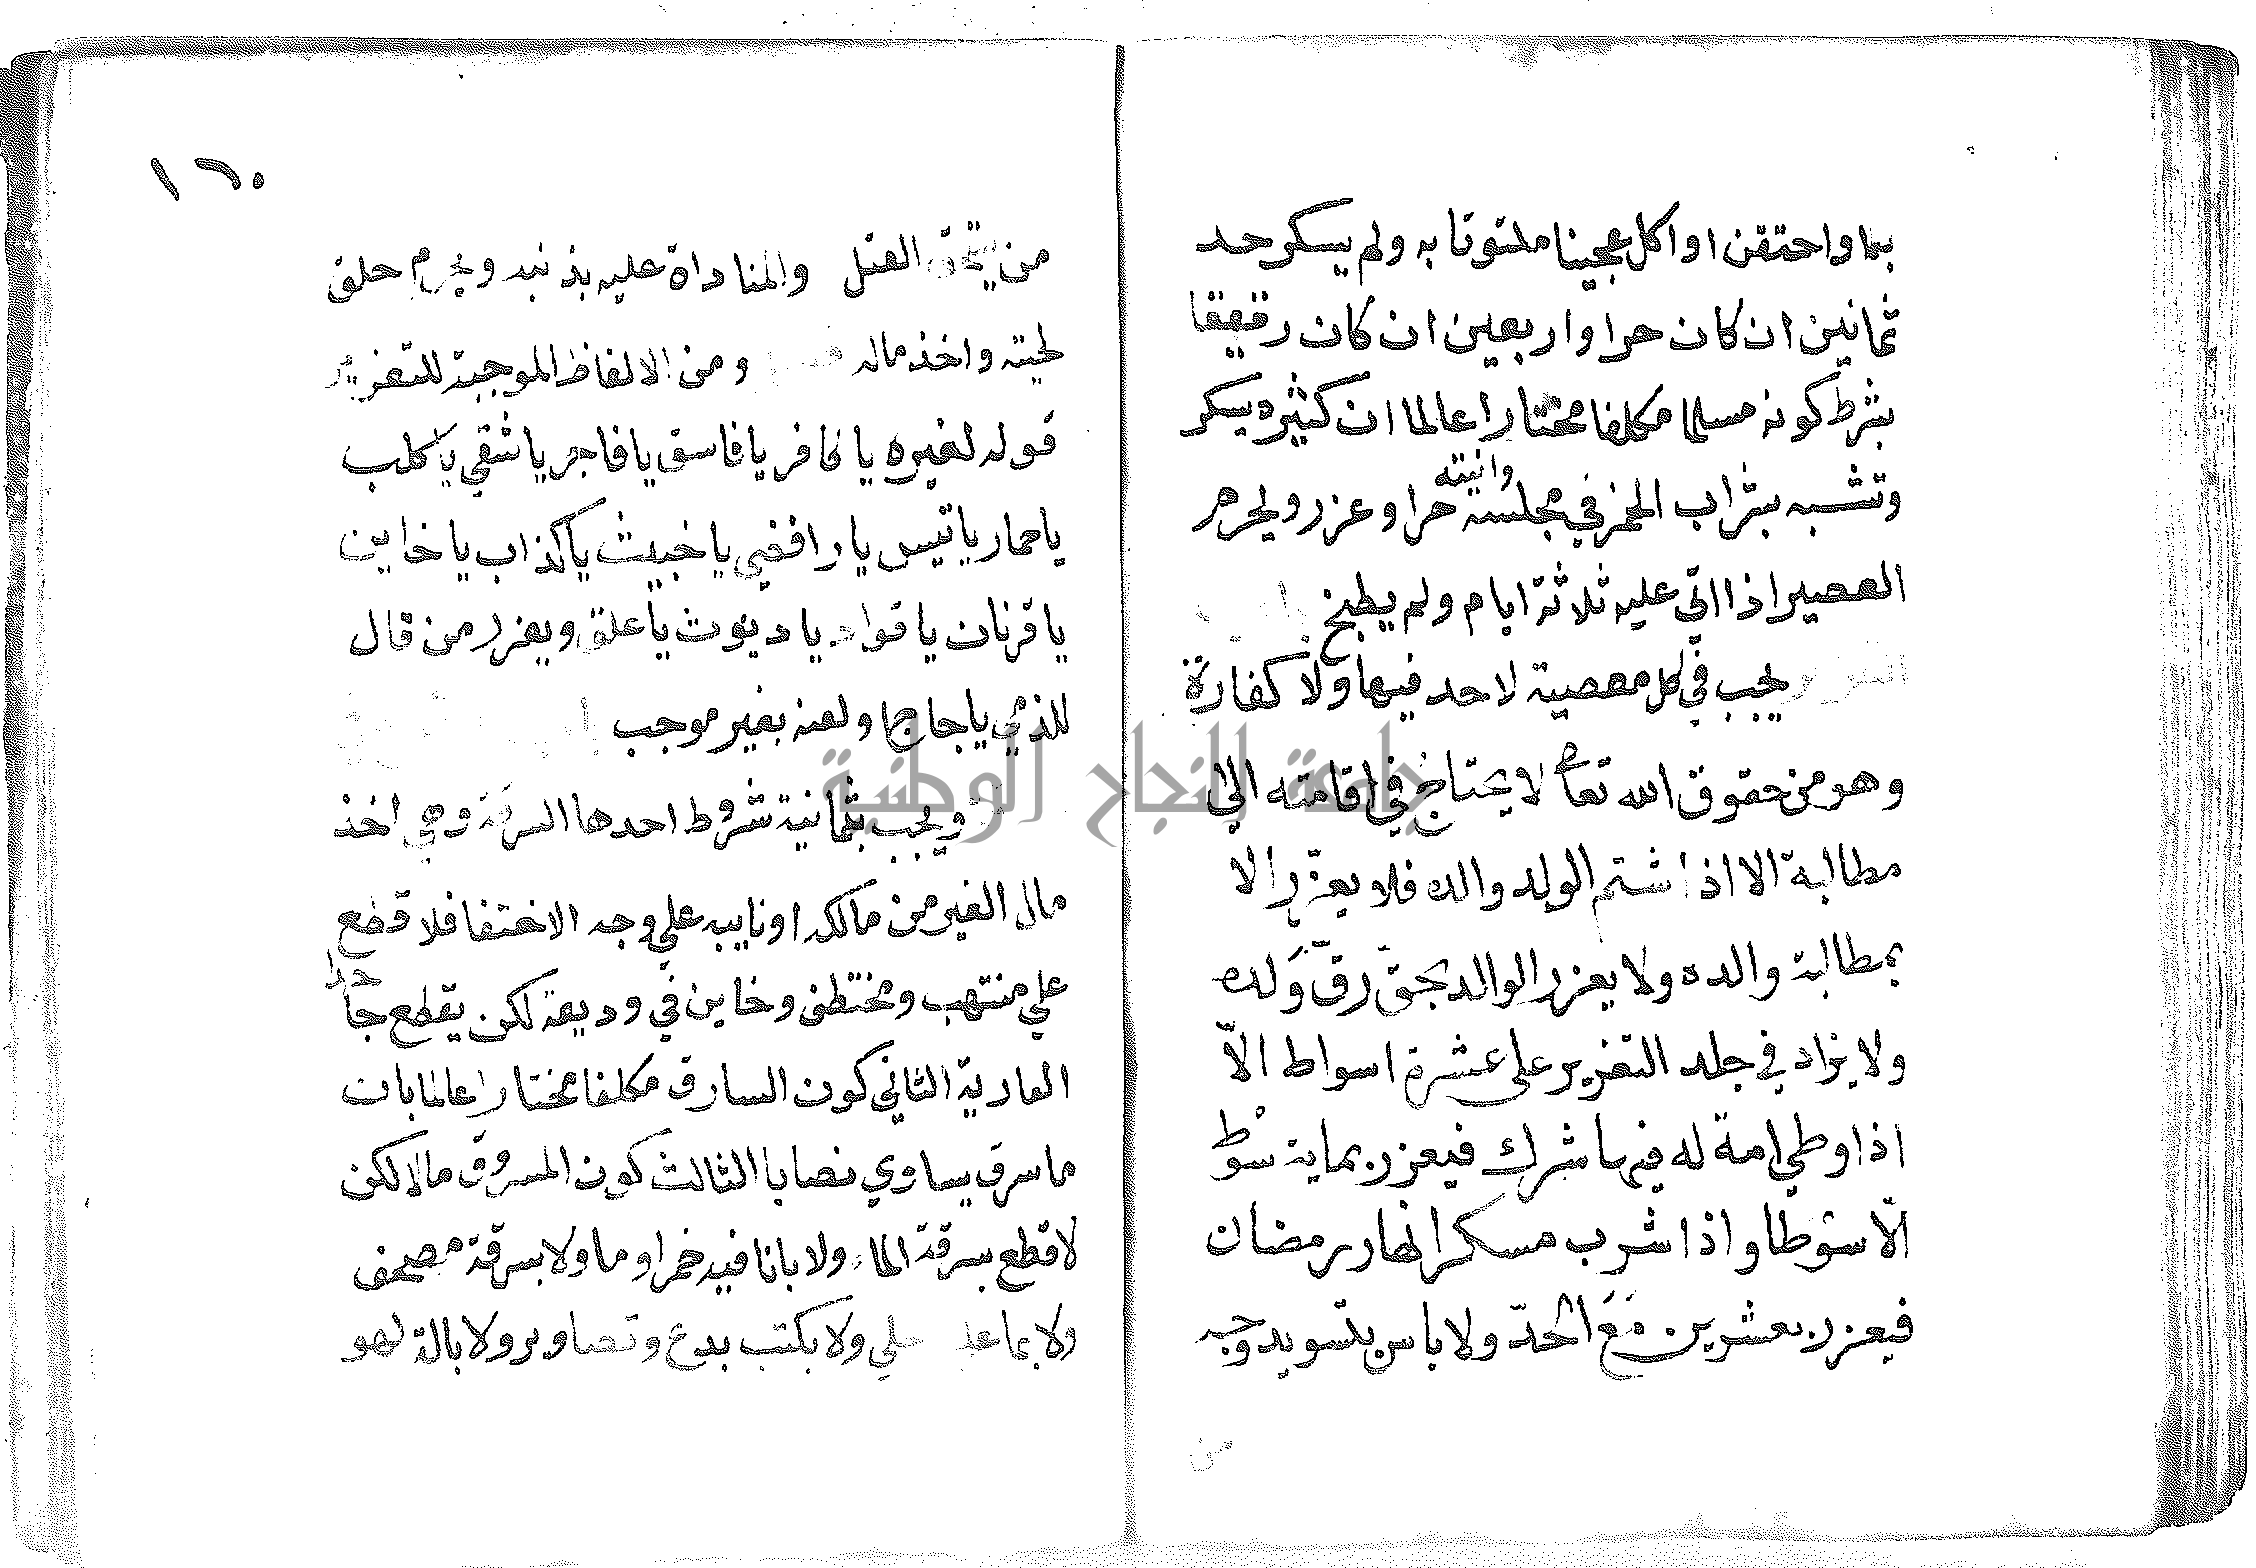 بما واحتقن او اكل عجينا ملتوتا به ولم يسكر حد
ثمانين ان كان حرا واربعين ان كان رقيقا
بشرط كونه مسلما مكلفا مختارا عالما ان كثيره يسكر
وتشبه بشراب الخمر في مجلسه وانيته حرا وعزر ويحرم
العصير اذا اتي عليه ثلاثة ايام ولم يطبخ باب
التعزير يجب في كل معصية لا حد فيها ولا كفارة
وهو من حقوق الله تعا لا يحتاج في اقامته الي
مطالبة الا اذا شتم الولد والده فلا يعزر الا
بمطالبة والده ولا يعزر الوالد بحق رق ولده
ولا يزاد في جلد التعزير علي عشرة اسواط الّا
اذا وطي امة له فيها شرك فيعزر بماية سوط
الّا سوطا واذا شرب مسكرا نهار رمضان
فيعزر بعشرين مَعَ الحدّ ولا باس بتسويد وجه
من
١٦٠
من يستحق القتل والمناداة عليه بذنبه ويحرم حلق
لحيته واخذ ماله ومن الالفاظ الموجبة للتعزير
قوله لغيره يا كافر يا فاسق يا فاجر يا شقي يا كلب
يا حمار يا تيس يا رافضي يا خبيث يا كذاب يا خاين
يا قرنان يا قواد يا ديوث يا علق ويعزر من قال
للذمي يا حاج او لعنه بغير موجب باب
ويجب بثمانية شروط احدها السرقة وهي اخذ
مال الغير من مالكه او نايبه علي وجه الاختفا فلا قطع
علي منتهب ومختطف وخاين في وديعة لكن يقطع جاحد
العارية الثاني كون السارق مكلفا مختارا عالما بان
ما سرق يساوي نصابا الثالث كون المسروق مالا لكن
لا قطع بسرقة الماء ولا بانا فيه خمر او ما ولا بسرقة مصحف
ولا بما عليه حلي ولا بكتب بدع وتصاوير ولا بالة لهو
جامعة النجاح الوطنية